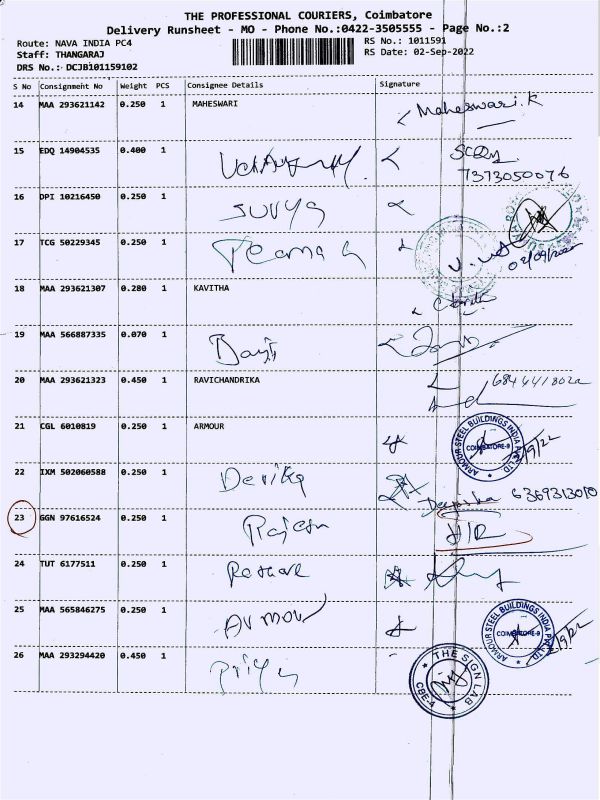 THE PROFESSIONAL COURIERS, Coimbatore
Delivery Runsheet - MO - Phone No.:0422-3505555 - Page No.:2
Route: NAVA INDIA PC4 RS No.: 1011591
Staff: THANGARAJ RS Date: 02-Sep-2022
DRS No.: DCJB101159102
S No Consignment No Weight PCS Consignee Details Signature
14 MAA 293621142 0.250 1 MAHESWARI Maheswari.K
15 EDQ 14904535 0.400 1
7373050076
16 DPI 10216450 0.250 1 SURYA
17 TCG 50229345 0.250 1
02/09/2022
18 MAA 293621307 0.280 1 KAVITHA
19 MAA 566887335 0.070 1
20 MAA 293621323 0.450 1 RAVICHANDRIKA
21 CGL 6010819 0.250 1 ARMOUR
ARMOUR STEEL BUILDINGS INDIA PVT LTD
COIMBATORE-9
22 IXM 502060588 0.250 1 Devika
Deepika 6369313010
23 GGN 97616524 0.250 1 Rajesh
24 TUT 6177511 0.250 1
25 MAA 565846275 0.250 1 Armour
ARMOUR STEEL BUILDINGS INDIA PVT LTD
COIMBATORE-9
26 MAA 293294420 0.450 1 Priya
THE SIGN LAB
CBE-4